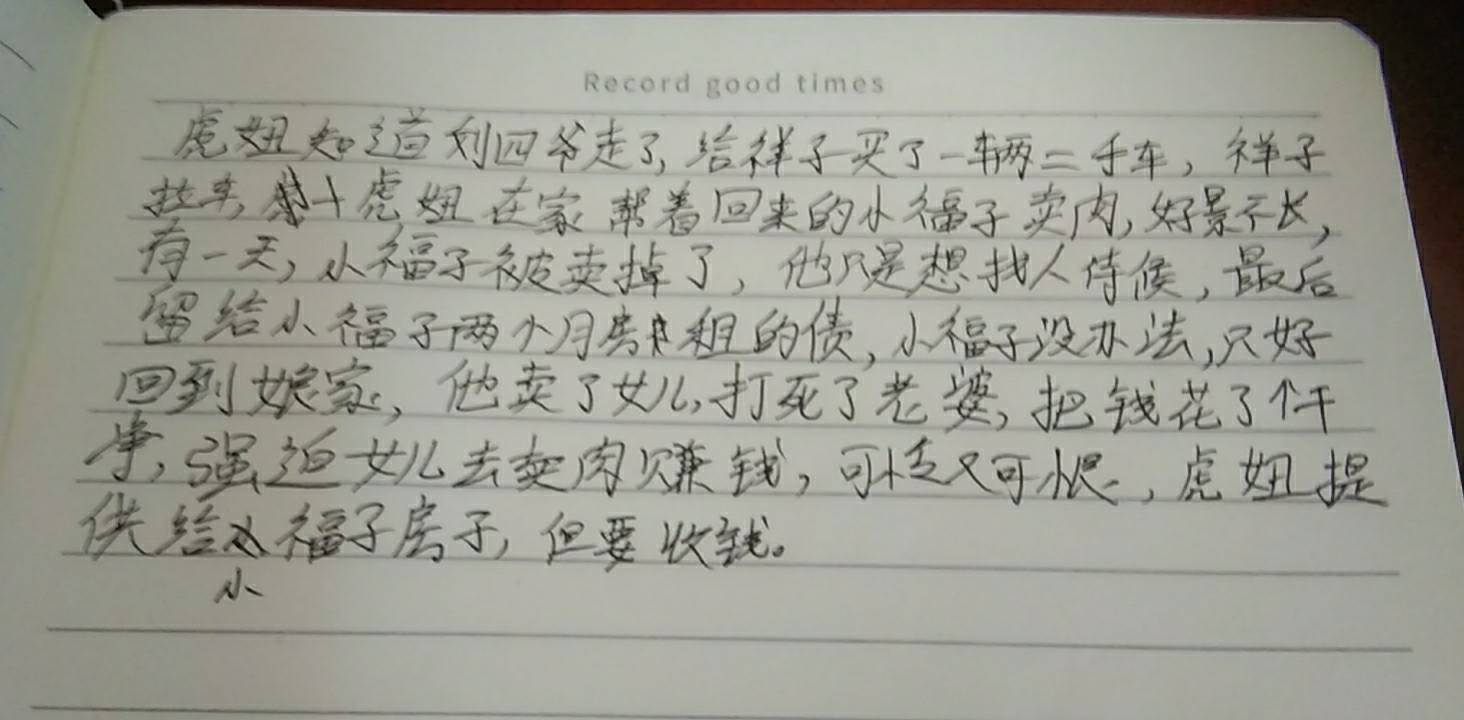 Record good times
虎妞知道刘四爷走了,给祥子买了一辆二手车,祥子
拉车,虎妞在家帮着回来的小福子卖肉,好景不长,
有一天,小福子被卖掉了,他只是想找人侍候,最后
留给小福子两个月房租的债,小福子没办法,只好
回到娘家,他卖了女儿,打死了老婆,把钱花了个干
净,强迫女儿去卖肉赚钱,可怜又可恨,虎妞提
供给小福子房子,但要收钱。